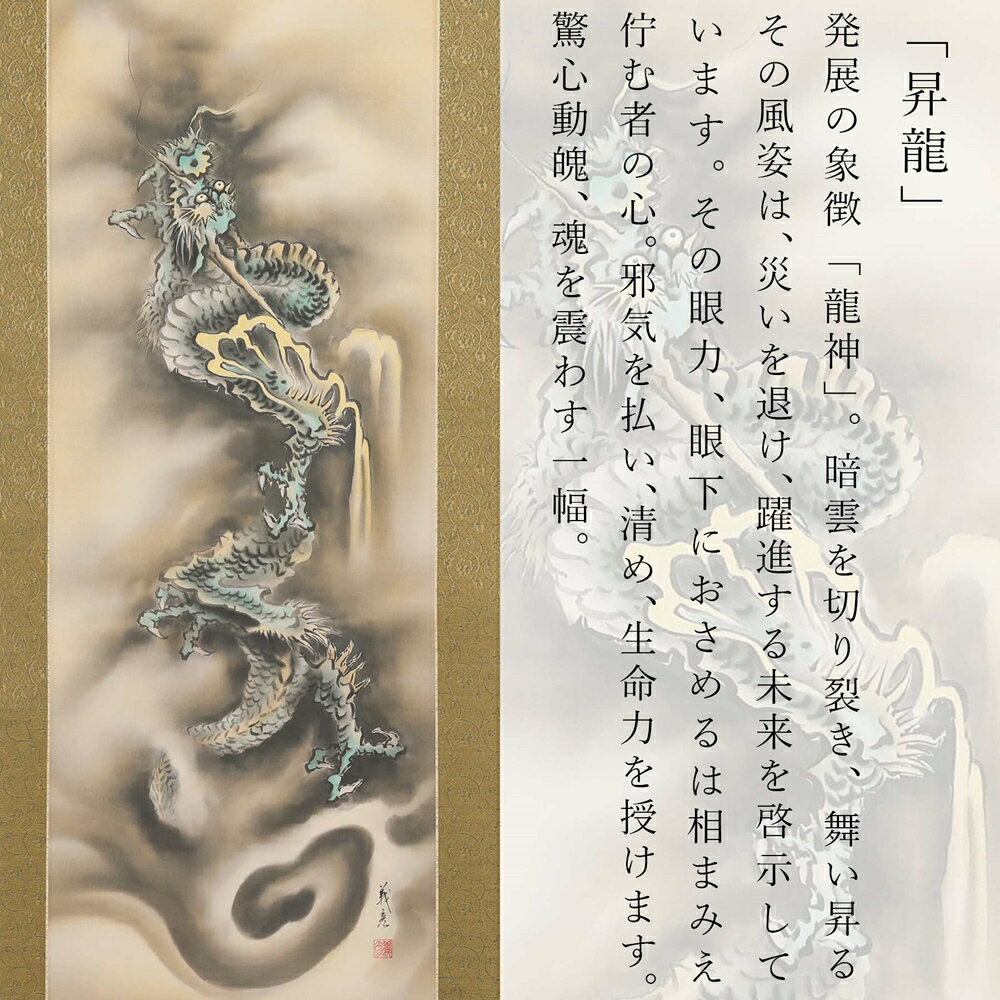 「昇龍」
発展の象徴「龍神」。暗雲を切り裂き、舞い昇る
その風姿は、災いを退け、躍進する未来を啓示して
います。その眼力、眼下におさめるは相まみえ
佇む者の心。邪気を払い、清め、生命力を授けます。
驚心動魄、魂を震わす一幅。
義彦